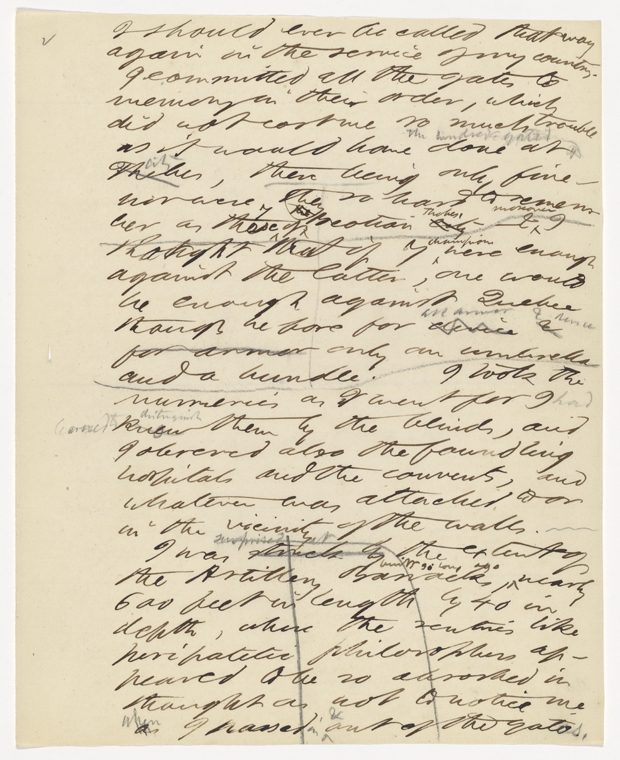 I should ever be called that way
again in the service of my country.
I committed all the gates to
memory in their order, which
did not cost me so much trouble
the hundred-gated
as it would have done at
city
Thebes, there being only five
nor were they so hard to remem
ber as those Boeotian Theban moreover I
thought that if 7 champions were enough
against the latter, one would
be enough against Quebec
all armor & device
though he bore for device &
for armor only an umbrella
and a bundle. I took the
nunneries as I went for I had
learned to distinguish
knew them by the blinds, and
I observed also the foundling
hospitals and the convents, and
whatever was attached to or
in the vicinity of the walls.
surprised at
I was struck by the extent of
built so long ago
the Artillery Barracks, nearly
600 feet in length by 40 in
depth, where the sentries like
peripatetic philosophers ap-
peared to be so absorbed in
thought as not to notice me
when in &
as I passed out of the gates.